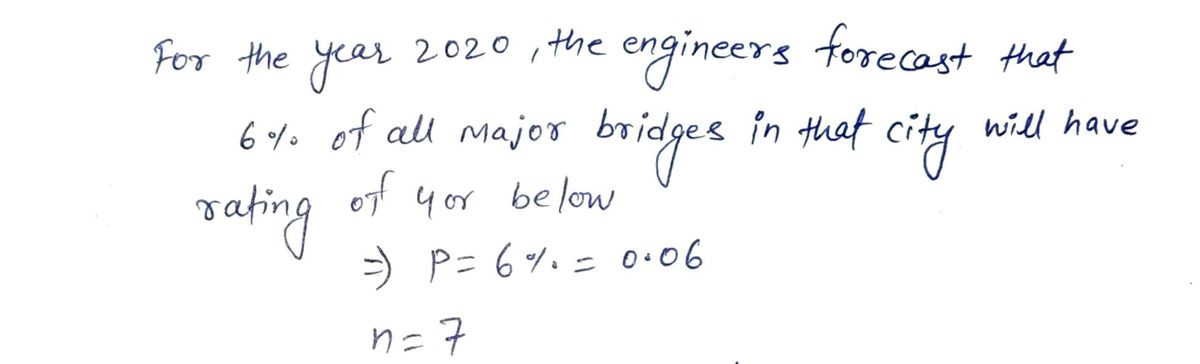 For the year 2020, the engineers forecast that
6% of all major bridges in that city will have
rating of 4 or below
⇒ P = 6% = 0.06
n = 7